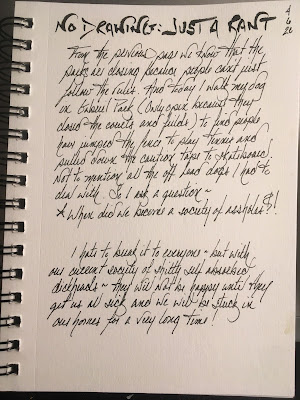 NO DRAWING: JUST A RANT
4
6
20
From the previous page we know that the
parks are closing because people can't just
follow the rules. And today I walk my dog
in Gabriel Park (only open because they
closed the courts and fields) to find people
have jumped the fence to play tennis and
pulled down the caution tape to skateboard!
Not to mention all the off lead dogs I had to
deal with. So I ask a question ~
* When did we become a society of assholes?!
I hate to break it to everyone ~ but with
our current society of self
~ they will not be happy until they
get us all sick and we will be stuck in
our homes for a very long time!